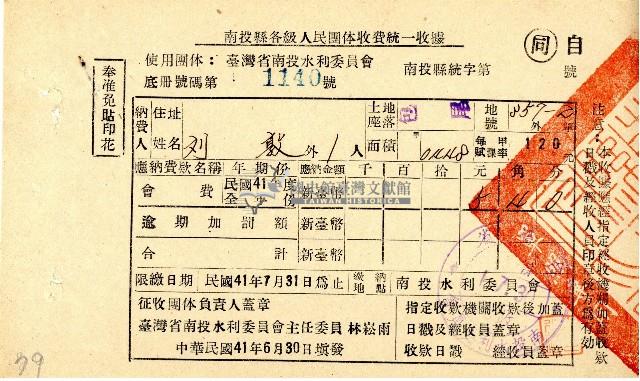 南投縣各級人民團体收費統一收據
同 自
使用團体：臺灣省南投水利委員會
底冊號碼第 1140 號
南投縣統字第 號
奉准免貼印花
納費人 住址 土地座落 地號 857-2 外 筆
姓名 刘 外1人 面積 0.448 每甲賦課率 120 元
應納費款名稱 年期份 應納金額 千 百 拾 元 角 分
會費 民國41年度全年份 新臺幣 5 4 0
逾期加罰額 新臺幣
合計 新臺幣
國史館臺灣文獻館
TAIWAN HISTORICA
限繳日期 民國41年7月31日為止 繳納地點 南投水利委員會
征收團体負責人蓋章
臺灣省南投水利委員會主任委員 林崧雨
中華民國41年6月30日填發
指定收款機關收款後加蓋
日戳及經收員蓋章
收款日戳 經收員蓋章
注意：本收據應經指定經收機關加蓋收款日戳及經收人員印章後方為有效
79